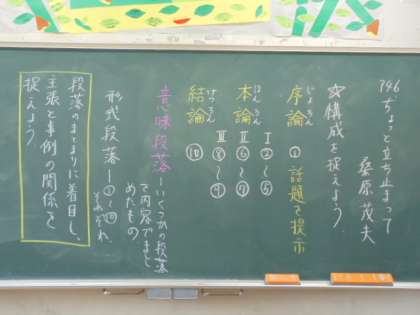 ちょっと立ち止まって
桑原茂夫
☆構成を捉えよう。
序論 ① 話題を提示
じょろん
Ⅰ ②〜⑤
本論 Ⅱ ⑥〜⑦
ほんろん
Ⅲ ⑧〜⑨
結論 ⑩
けつろん
意味段落―いくつかの段落
を内容でまと
めたもの
形式段落―①〜⑩
段落のまとまりに着目し、
主張と事例の関係を
捉えよう